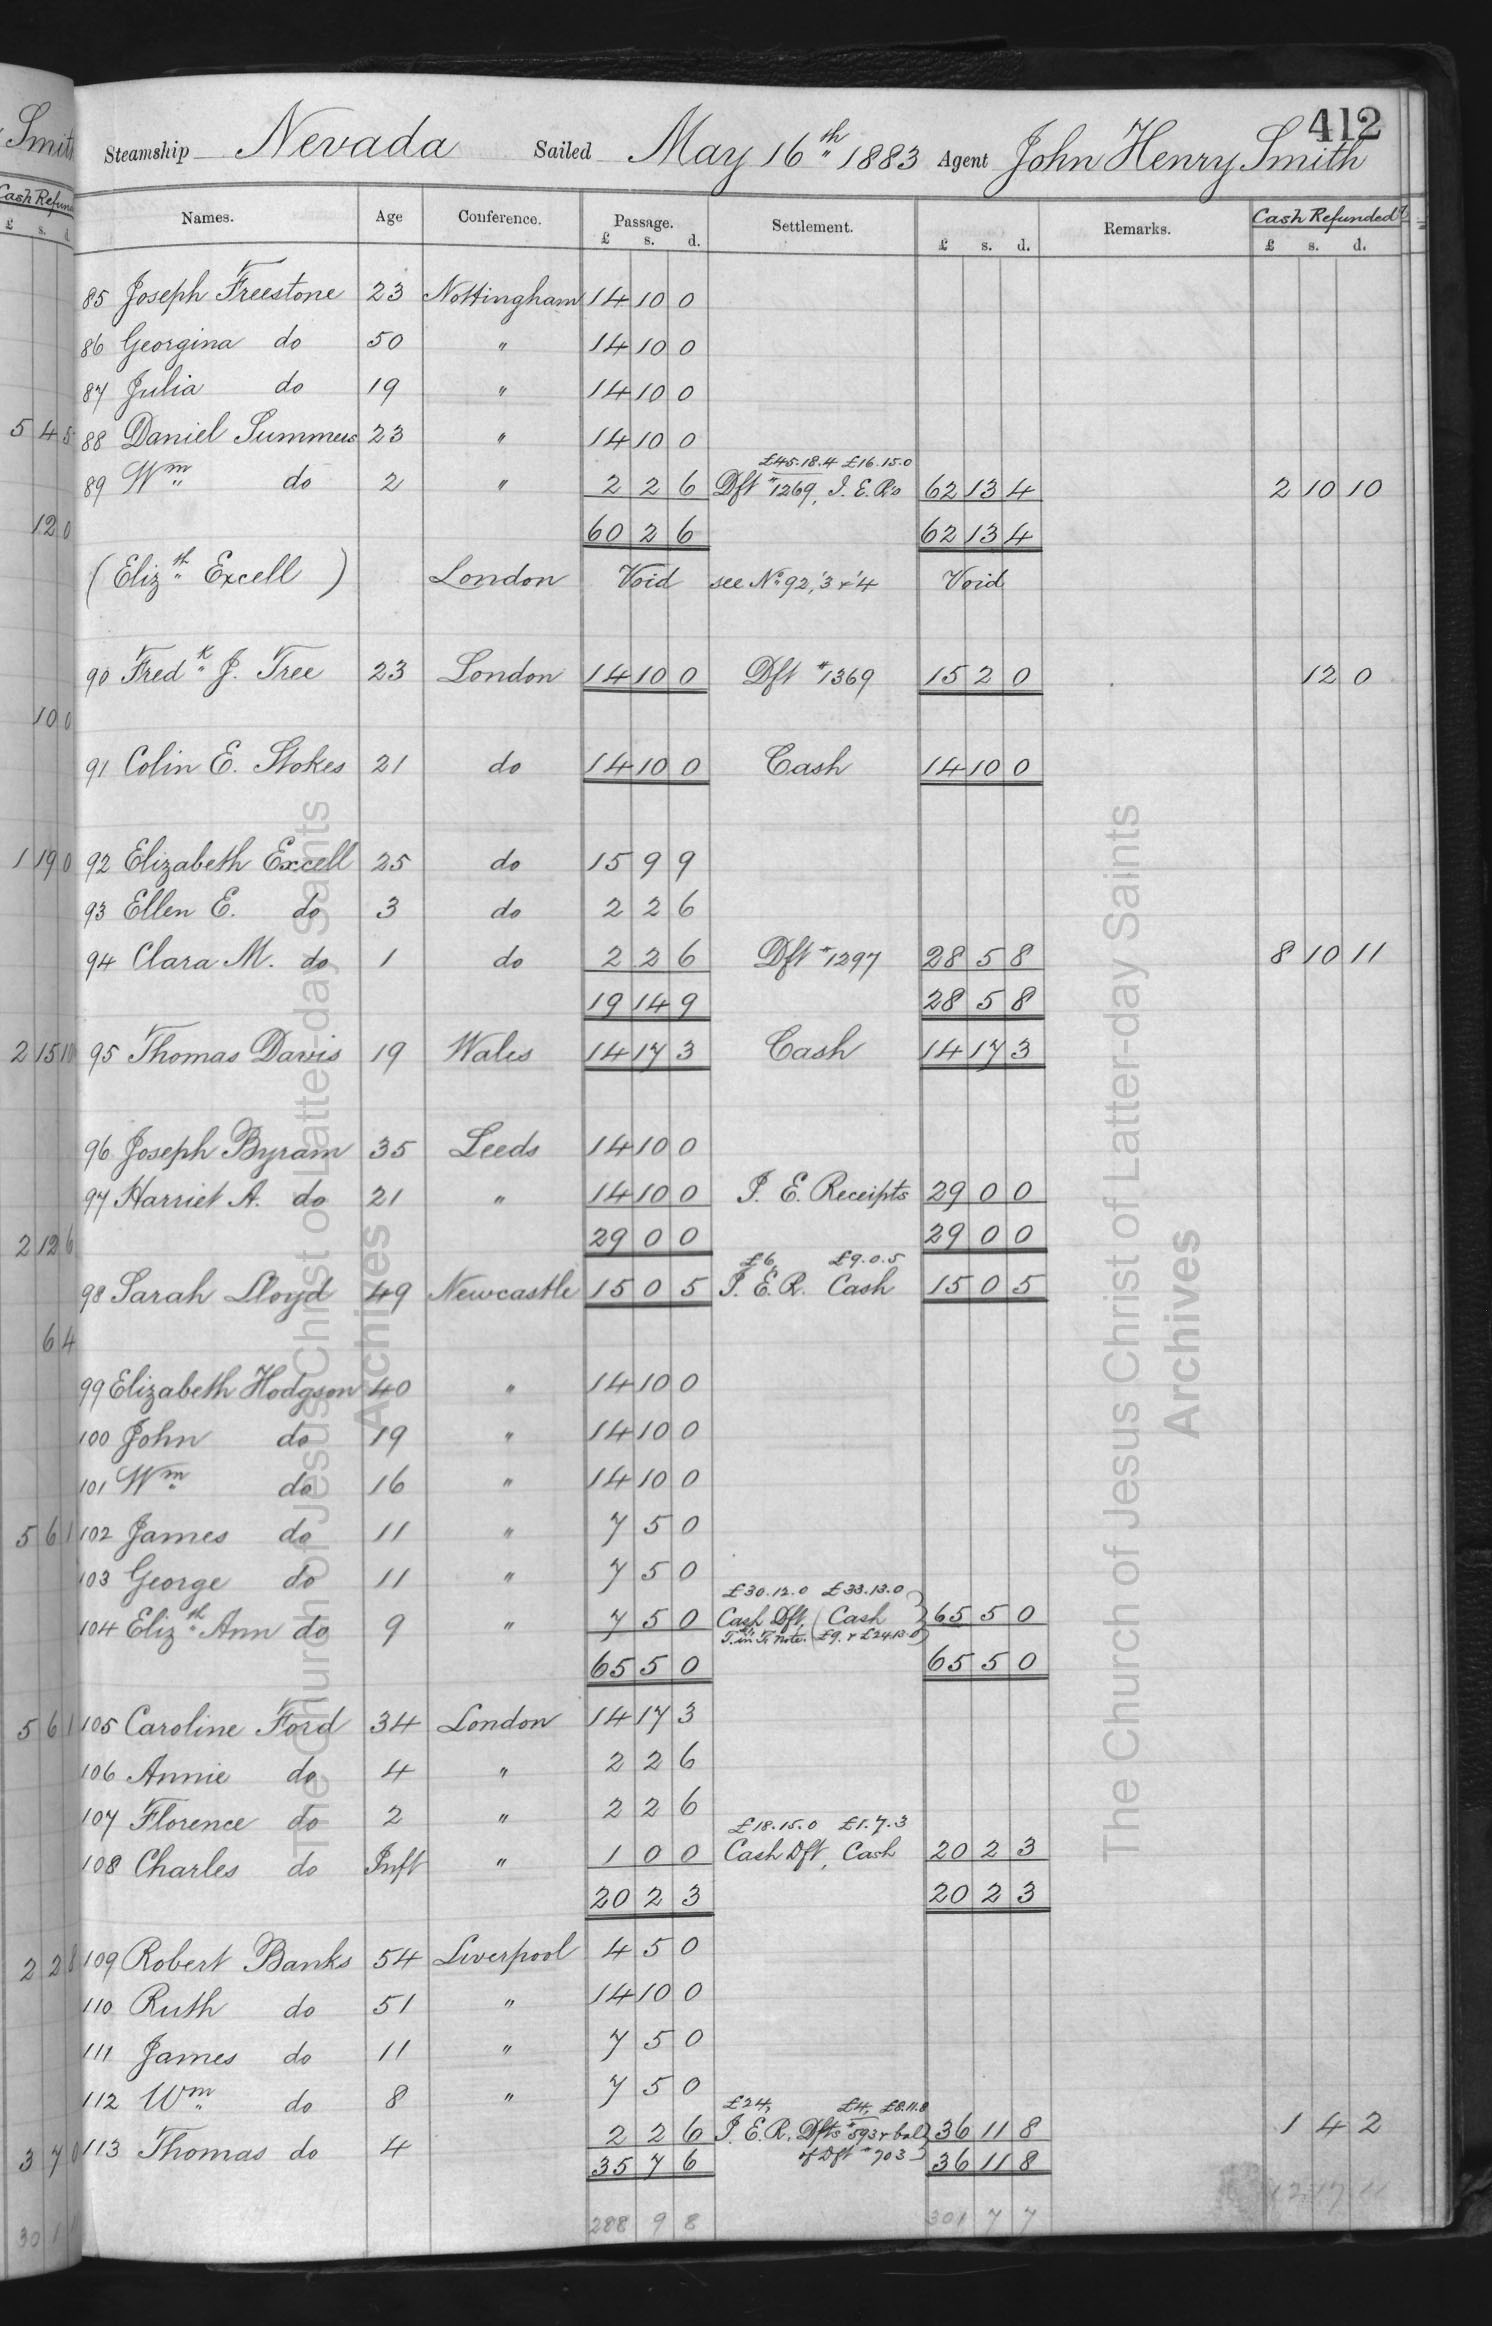 412
Steamship Nevada Sailed May 16th 1883 Agent John Henry Smith
Names. Age Conference. Passage. £ s. d. Settlement. £ s. d. Remarks. Cash Refunded £ s. d.
85 Joseph Freestone 23 Nottingham 14 10 0
86 Georgina do 50 " 14 10 0
87 Julia do 19 " 14 10 0
88 Daniel Summers 23 " 14 10 0
£45.18.4 £16.15.0
89 Wm do 2 " 2 2 6 Dft #1269, I. E. Rs 62 13 4 2 10 10
60 2 6 62 13 4
(Elizth Excell) London Void see No 92, '3 & '4 Void
90 Fredk J. Tree 23 London 14 10 0 Dft #1369 15 2 0 12 0
91 Colin E. Stokes 21 do 14 10 0 Cash 14 10 0
92 Elizabeth Excell 25 do 15 9 9
93 Ellen E. do 3 do 2 2 6
94 Clara M. do 1 do 2 2 6 Dft #1297 28 5 8 8 10 11
19 14 9 28 5 8
95 Thomas Davis 19 Wales 14 17 3 Cash 14 17 3
96 Joseph Byram 35 Leeds 14 10 0
97 Harriet A. do 21 " 14 10 0 I. E. Receipts 29 0 0
29 0 0 29 0 0
£6, £9.0.5
98 Sarah Lloyd 49 Newcastle 15 0 5 I. E. R. Cash 15 0 5
99 Elizabeth Hodgson 40 " 14 10 0
100 John do 19 " 14 10 0
101 Wm do 16 " 14 10 0
102 James do 11 " 7 5 0
103 George do 11 " 7 5 0
£30.12.0 £33.13.0
104 Elizth Ann do 9 " 7 5 0 Cash Dft, (Cash 65 5 0
note. (£9. & £24.13.0)
65 5 0 65 5 0
105 Caroline Ford 34 London 14 17 3
106 Annie do 4 " 2 2 6
107 Florence do 2 " 2 2 6
£18.15.0 £1.7.3
108 Charles do Inft " 1 0 0 Cash Dft, Cash 20 2 3
20 2 3 20 2 3
109 Robert Banks 54 Liverpool 4 5 0
110 Ruth do 51 " 14 10 0
111 James do 11 " 7 5 0
112 Wm do 8 " 7 5 0
£24, £4, £8.11.8
113 Thomas do 4 2 2 6 I. E. R. Dfts #593 & bal 36 11 8 1 4 2
of Dft #703
35 7 6 36 11 8
288 9 8 301 7 7 12 17 11
The Church of Jesus Christ of Latter-day Saints
Archives
The Church of Jesus Christ of Latter-day Saints
Archives
Smith
Cash Refun
£ s. d.
5 4 5
12 0
10 0
1 19 0
2 15 10
2 12 6
6 4
5 6 1
5 6 1
2 2 8
3 7 0